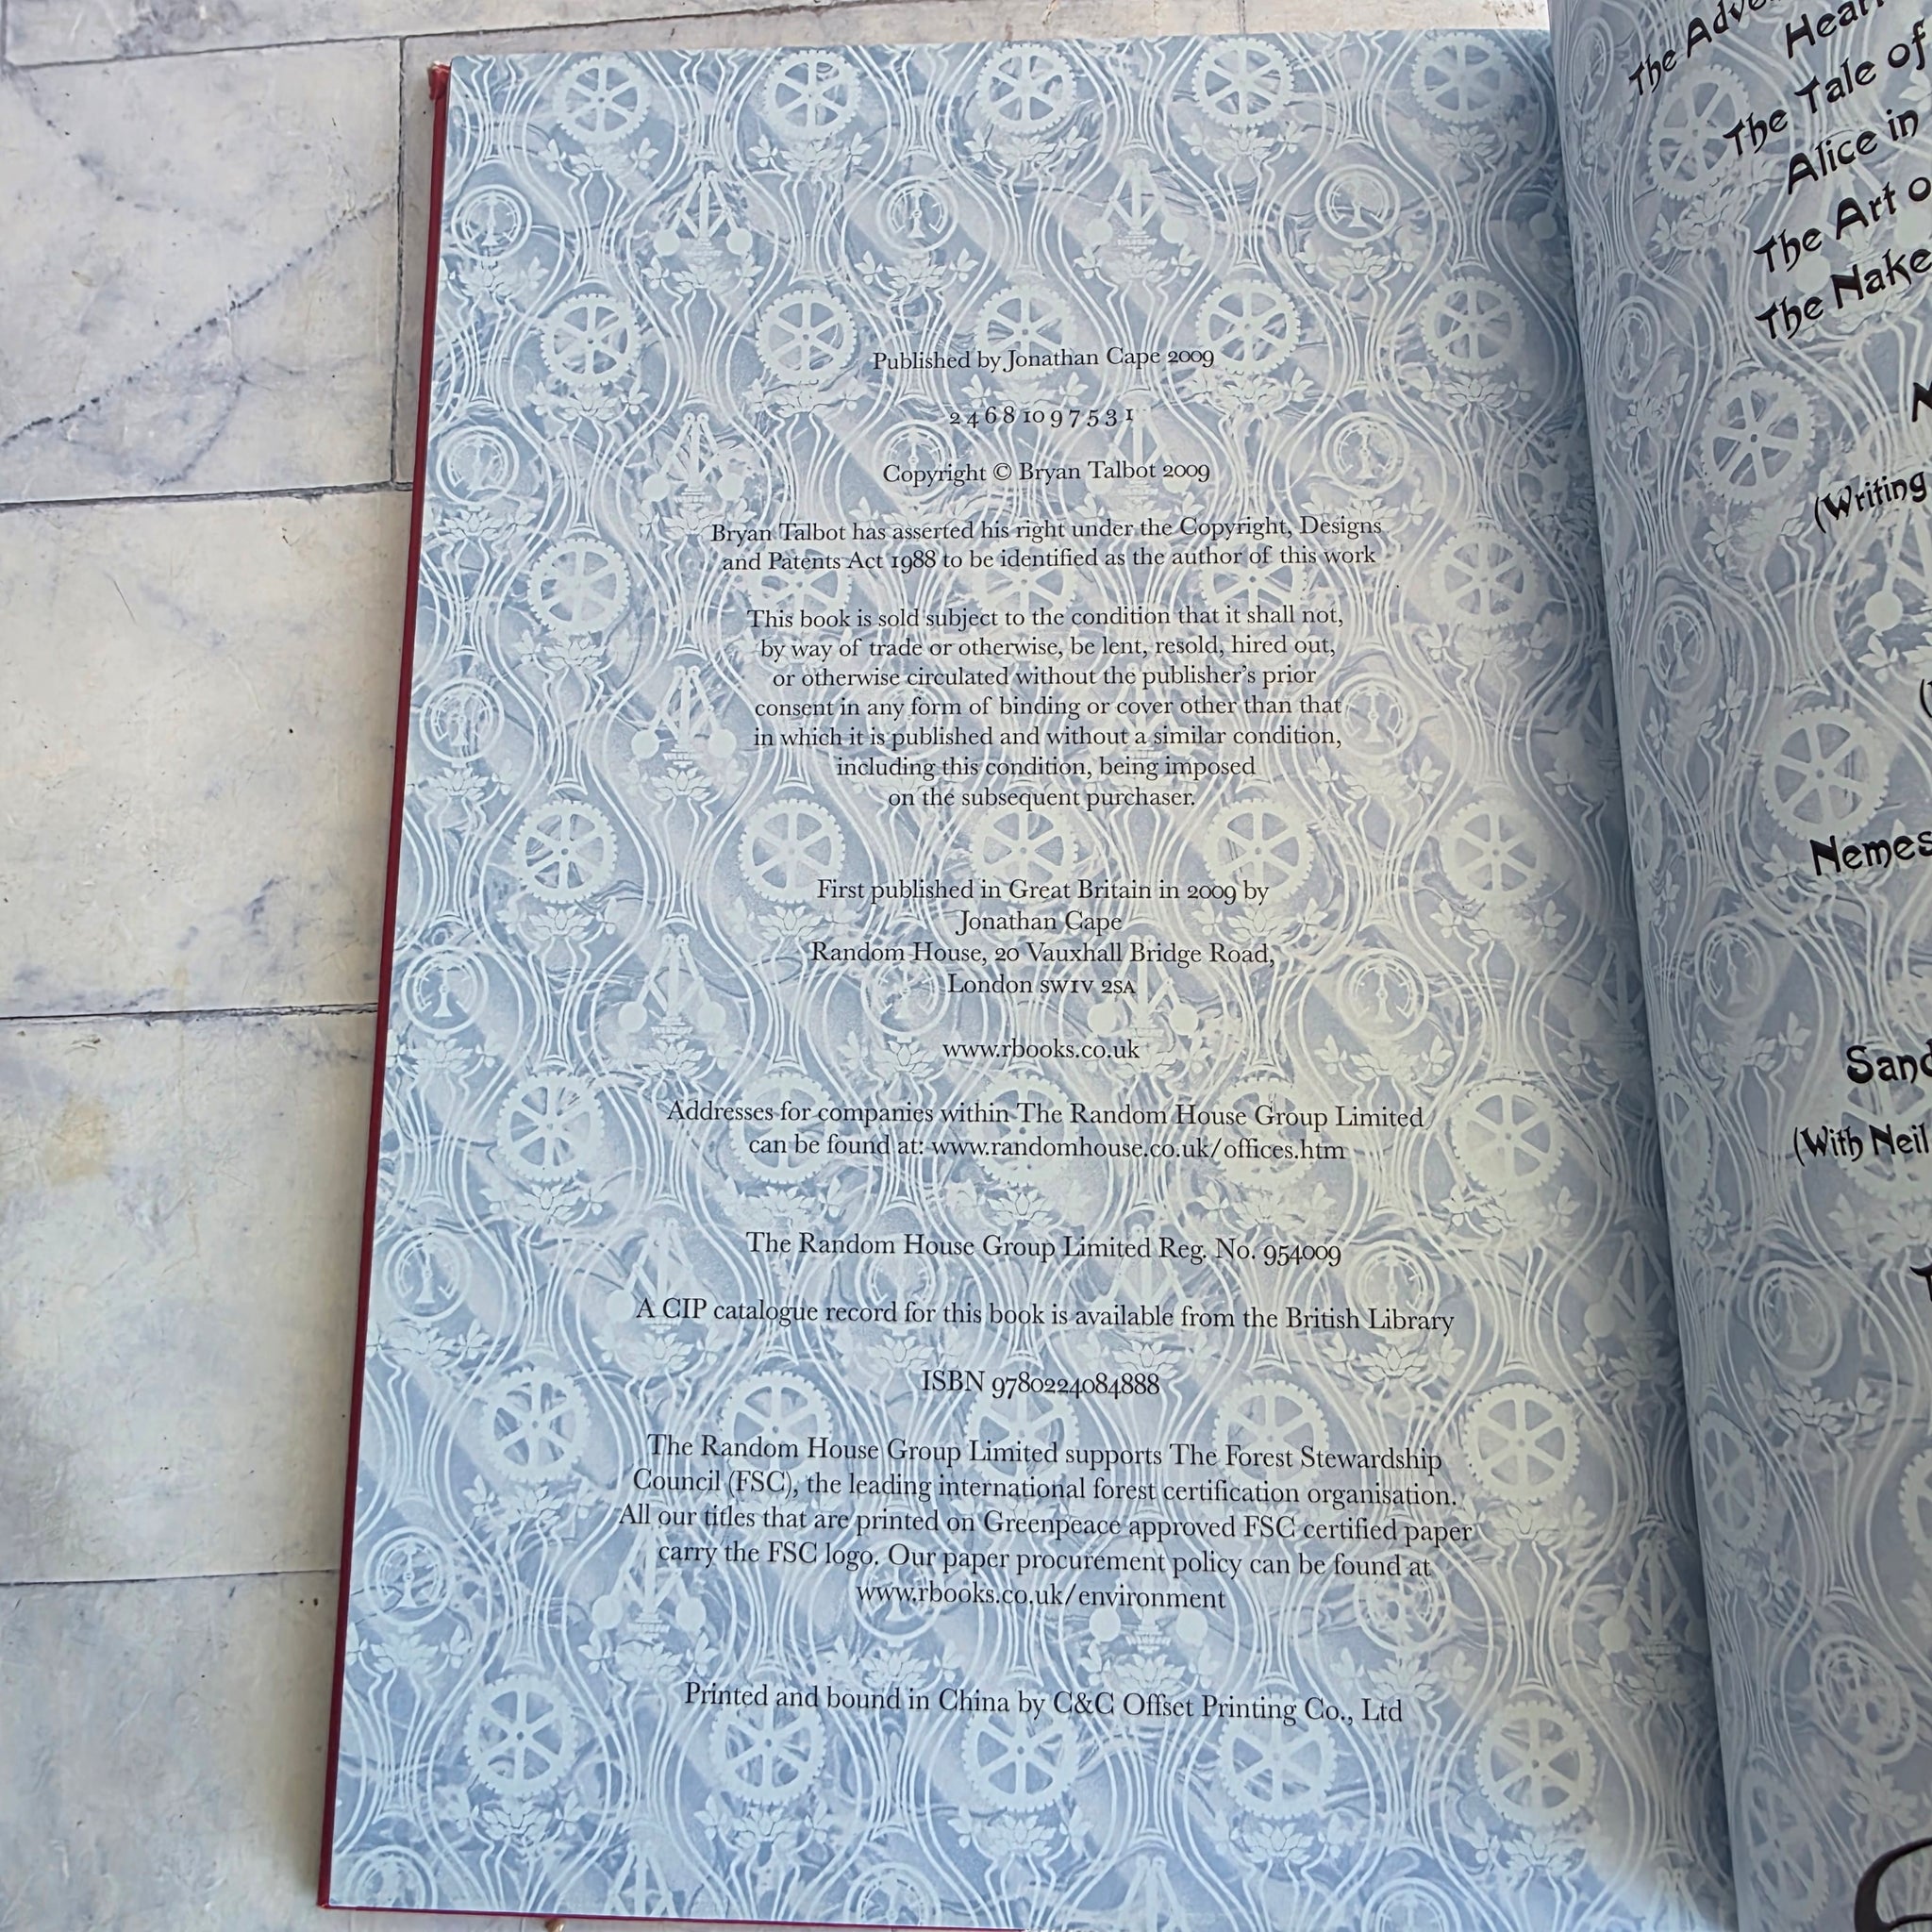 Published by Jonathan Cape 2009
2 4 6 8 10 9 7 5 3 1
Copyright © Bryan Talbot 2009
Bryan Talbot has asserted his right under the Copyright, Designs
and Patents Act 1988 to be identified as the author of this work
This book is sold subject to the condition that it shall not,
by way of trade or otherwise, be lent, resold, hired out,
or otherwise circulated without the publisher's prior
consent in any form of binding or cover other than that
in which it is published and without a similar condition,
including this condition, being imposed
on the subsequent purchaser.
First published in Great Britain in 2009 by
Jonathan Cape
Random House, 20 Vauxhall Bridge Road,
London SW1V 2SA
www.rbooks.co.uk
Addresses for companies within The Random House Group Limited
can be found at: www.randomhouse.co.uk/offices.htm
The Random House Group Limited Reg. No. 954009
A CIP catalogue record for this book is available from the British Library
ISBN 9780224084888
The Random House Group Limited supports The Forest Stewardship
Council (FSC), the leading international forest certification organisation.
All our titles that are printed on Greenpeace approved FSC certified paper
carry the FSC logo. Our paper procurement policy can be found at
www.rbooks.co.uk/environment
Printed and bound in China by C&C Offset Printing Co., Ltd
The
The Tale of
Alice in
The Art
The
(Writing
(With Neil